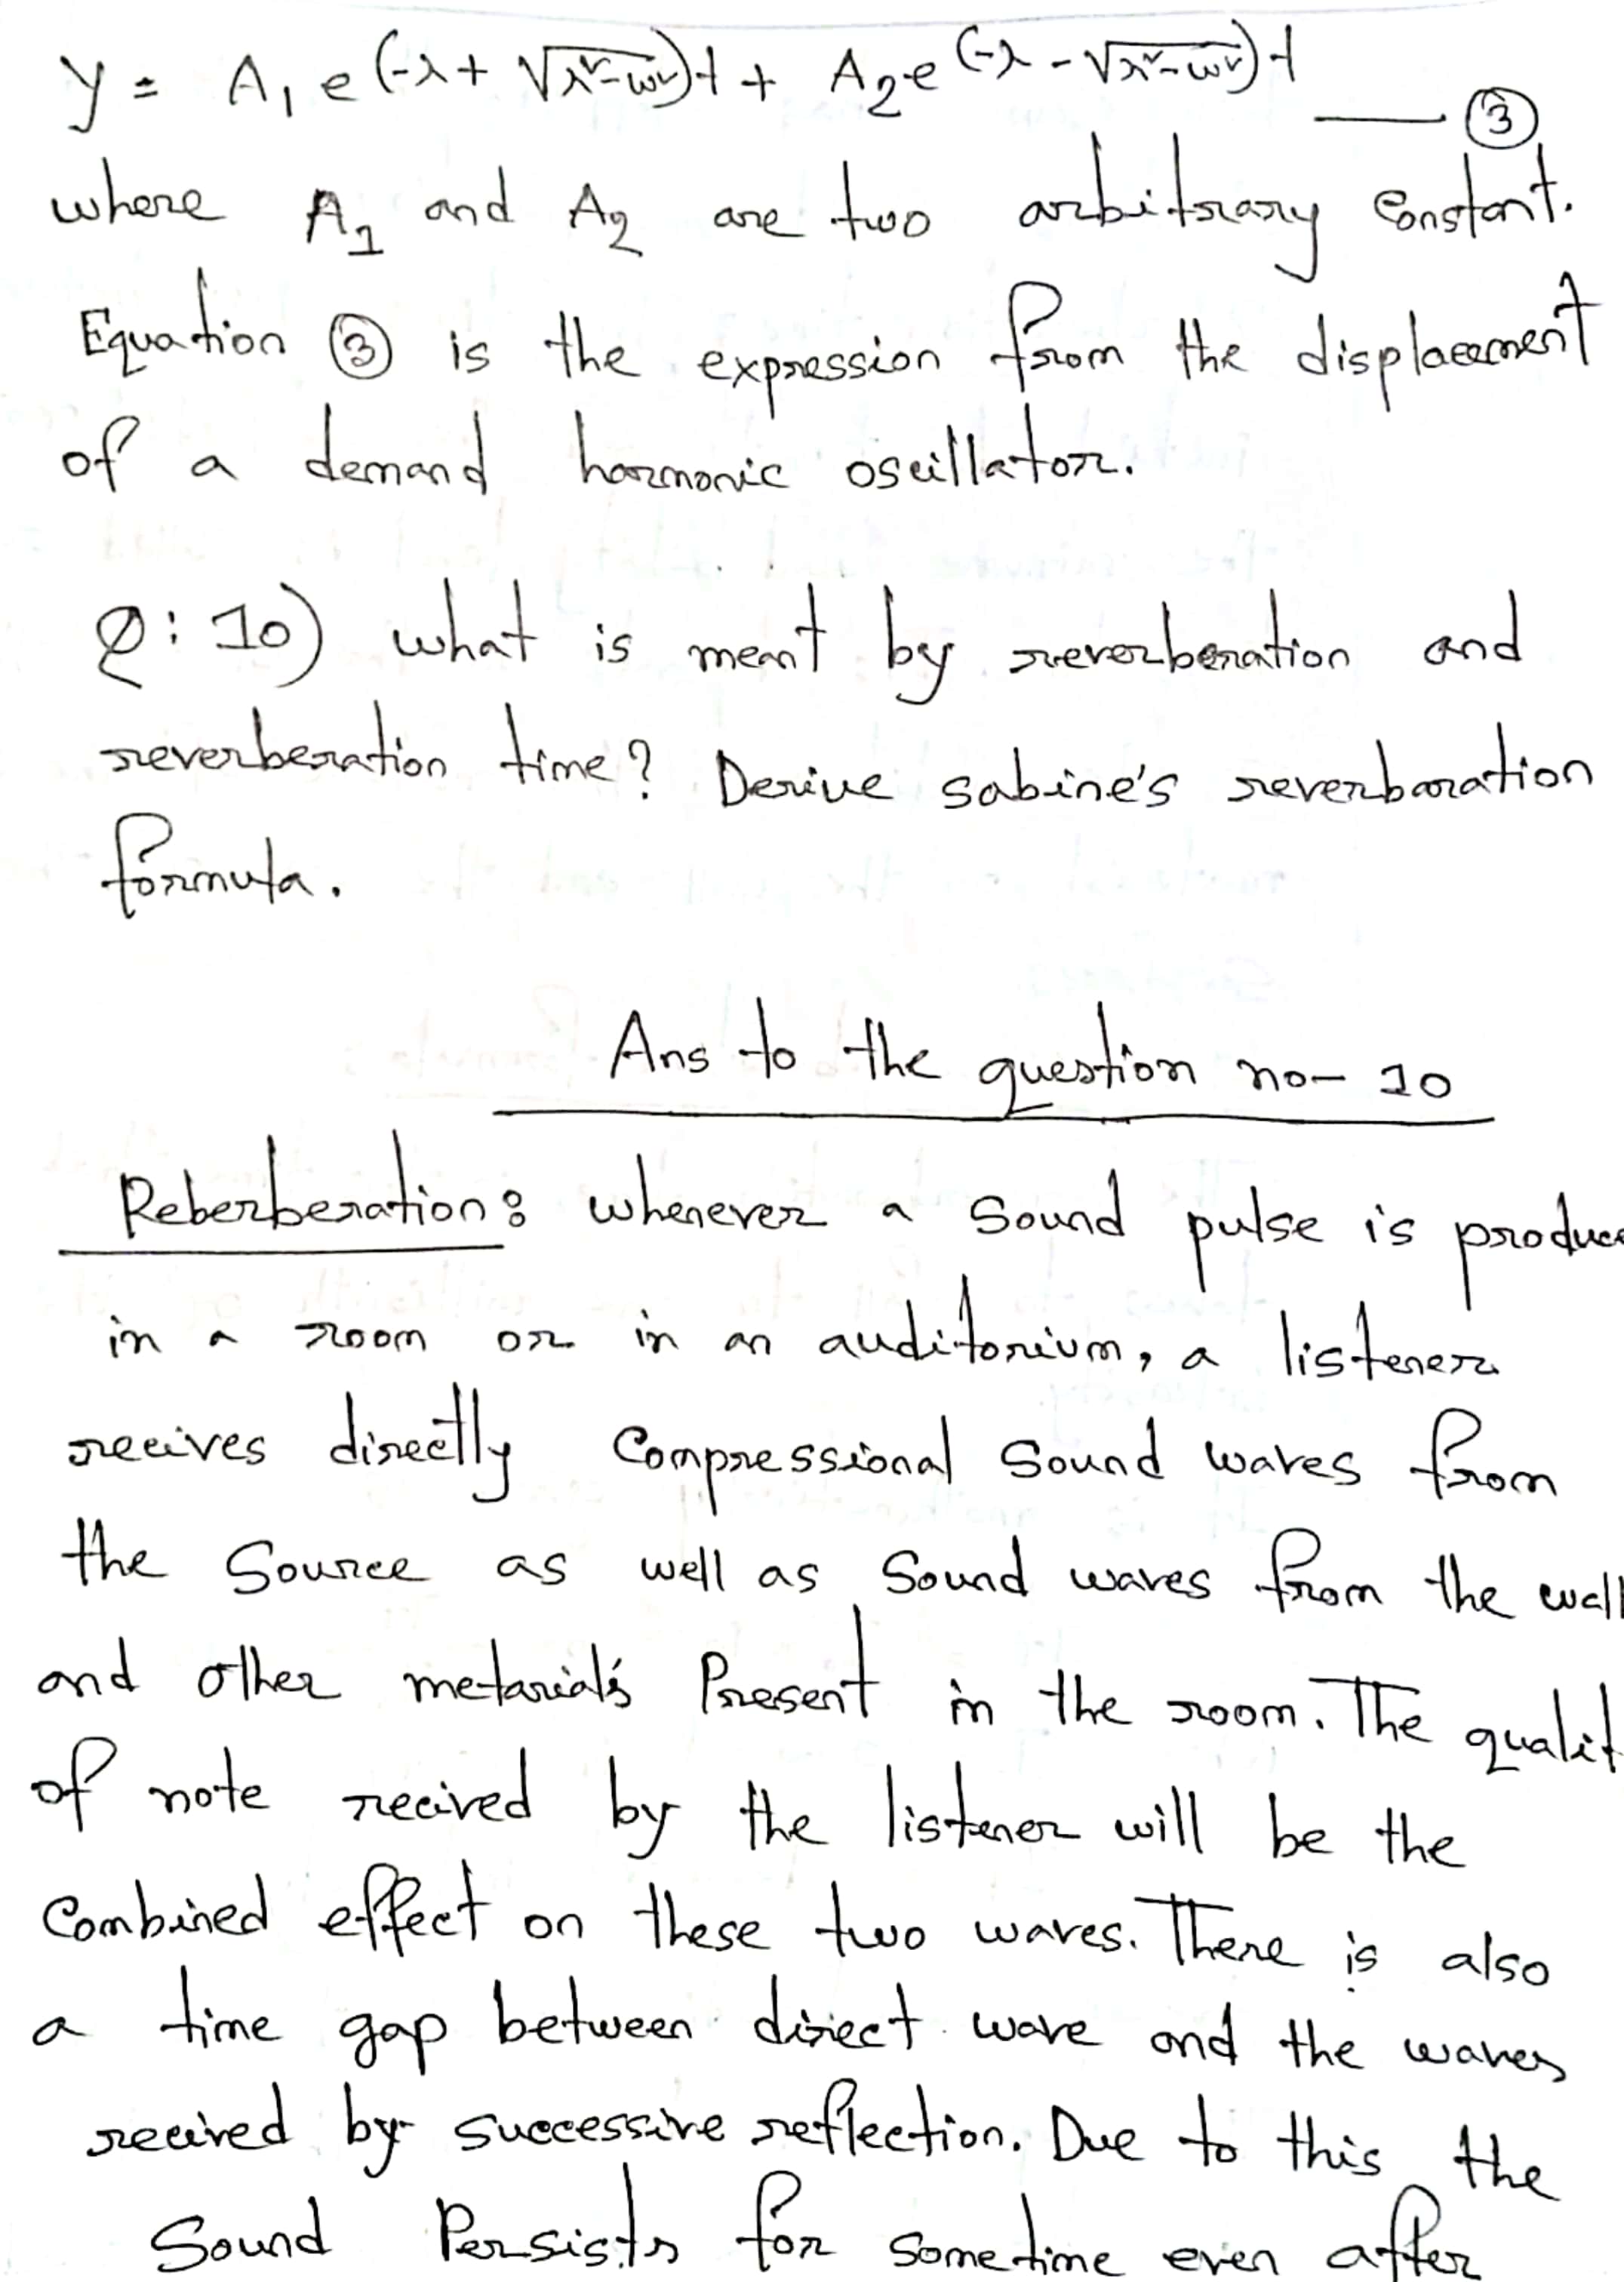 y = A₁ e^(-λ + √λ²-ω²)t + A₂e^(-λ - √λ²-ω²)t — ③
where A₁ and A₂ are two arbitrary constant.
Equation ③ is the expression from the displacement
of a demand harmonic oscillator.
Q: 10) what is meant by reverberation and
reverberation time? Derive sabine's reverbaration
formula.
Ans to the question no- 10
Reberberation: whenever a sound pulse is produce
in a room or in an auditorium, a listener
recives directly compressional sound waves from
the source as well as sound waves from the wall
and other metarial's present in the room. The qualit
of note recived by the listener will be the
combined effect on these two waves. There is also
a time gap between direct wave and the waves
recived by successive reflection. Due to this the
sound persists for sometime even after